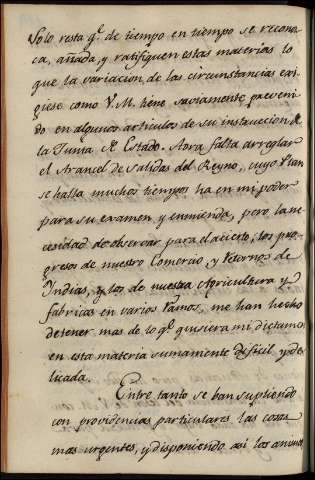 Solo resta q.e de tiempo en tiempo se recono=
ca, añada, y ratifiquen estas materias lo
que la variacion de las circunstancias exi
giese como V.M. tiene saviamente preveni
do en algunos articulos de su instruccion de
la Junta de Estado. Aora falta arreglar
el Arancel de salidas del Reyno, cuyo Plan
se halla muchos tiempos ha en mi poder
para su examen y enmienda, pero la ne
cesidad de observar para el acierto, los pro
gresos de nuestro Comercio, y Retornos de
Indias, y los de nuestra Agricultura y
fabricas en varios Ramos, me han hecho
detener mas de lo q.e quisiera mi dictamen
en esta materia sumamente dificil, y de
licada.
Entre tanto se ban supliendo
con providencias particulares las cosas
mas urgentes, y disponiendo asi los animos